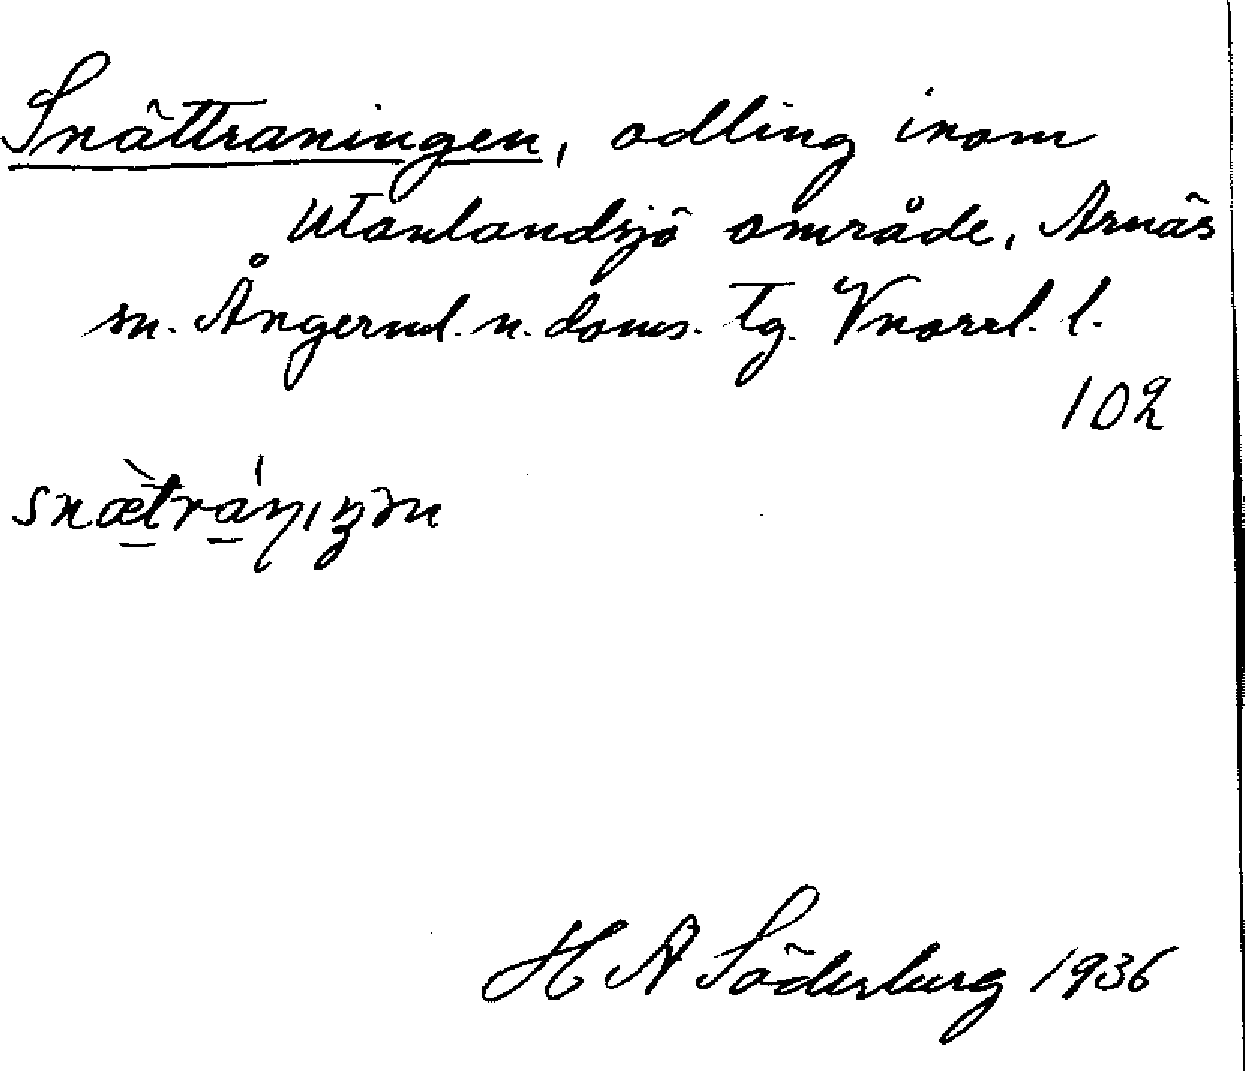 Snättraningen, odling inom
Utanlandsjö område, Arnäs
sn. Ångerml. n. doms. tg. Vnorrl. l.
102
snæ̀tráṇıŋən
H A Söderberg 1936